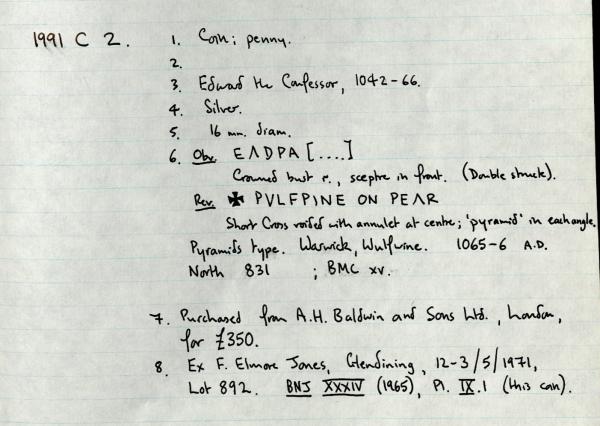 1991 C 2. 1. Coin; penny.
2.
3. Edward the Confessor, 1042-66.
4. Silver.
5. 16 mm. diam.
6. Obv. EΛDPA [....]
Crowned bust r., sceptre in front. (Double struck).
Rev. ✠ PVLFPINE ON PEΛR
Short Cross voided with annulet at centre; 'pyramid' in each angle.
Pyramids type. Warwick, Wulfwine. 1065-6 A.D.
North 831 ; BMC xv.
7. Purchased from A.H. Baldwin and Sons Ltd., London,
for £350.
8. Ex F. Elmore Jones, Glendining, 12-3/5/1971,
Lot 892. BNJ XXXIV (1965), Pl. IX.1 (this coin).